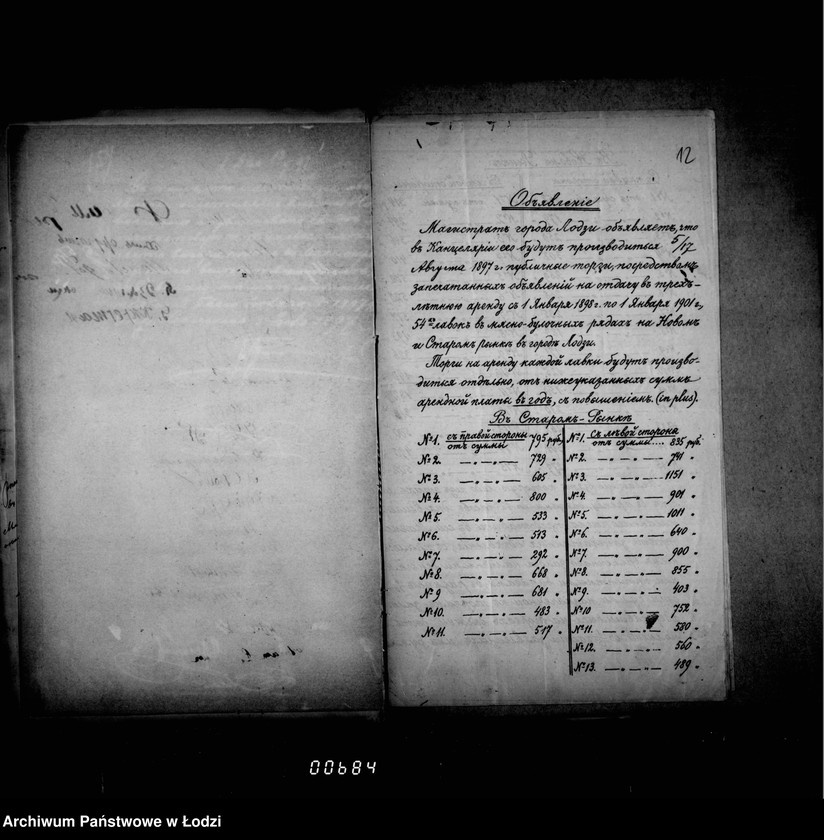 12
Объявленіе
Магистратъ города Лодзи объявляетъ, что
въ Канцеляріи его будутъ производиться 5/17
Августа 1897 г. публичные торги, посредствомъ
запечатанныхъ объявленій на отдачу въ трехъ-
лѣтнюю аренду съ 1 Января 1898 г. по 1 Января 1901 г.,
54хъ лавокъ въ мясно-булочныхъ рядахъ на Новомъ
и Старомъ рынкѣ въ городѣ Лодзи.
Торги на аренду каждой лавки будутъ произво-
диться отдѣльно, отъ нижеуказанныхъ суммъ
арендной платы въ годъ, съ повышеніемъ. (in plus).
Въ Старомъ-Рынкѣ
съ правой стороны
№1. отъ суммы 795 руб.
№2. — „ — „ — 729 „
№3. — „ — „ — 605 „
№4. — „ — „ — 800 „
№5. — „ — „ — 533 „
№6. — „ — „ — 573 „
№7. — „ — „ — 292 „
№8. — „ — „ — 668 „
№9 — „ — „ — 681 „
№10. — „ — „ — 483 „
№11. — „ — „ — 517 „
Съ лѣвой сторона
№1. отъ суммы.... 835 руб.
№2. — „ — „ — 741 „
№3. — „ — „ — 1151 „
№4. — „ — „ — 901 „
№5. — „ — „ — 1011 „
№6. — „ — „ — 640 „
№7. — „ — „ — 900 „
№8. — „ — „ — 855 „
№9. — „ — „ — 403 „
№10 — „ — „ — 752 „
№11. — „ — „ — 580 „
№12. — „ — „ — 560 „
№13. — „ — „ — 489 „
00684
Archiwum Państwowe w Łodzi